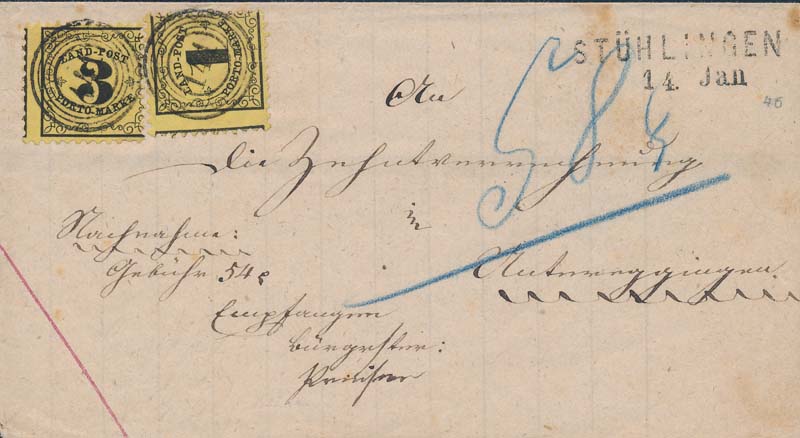 LAND-POST
3
PORTO-MARKE
LAND-POST
1
PORTO-MARKE
STÜHLINGEN
14 Jan
46
An
die Zehntverrechnung
in
Untereggingen
58 x
Nachnahme:
Gebühr 54
Empfangen